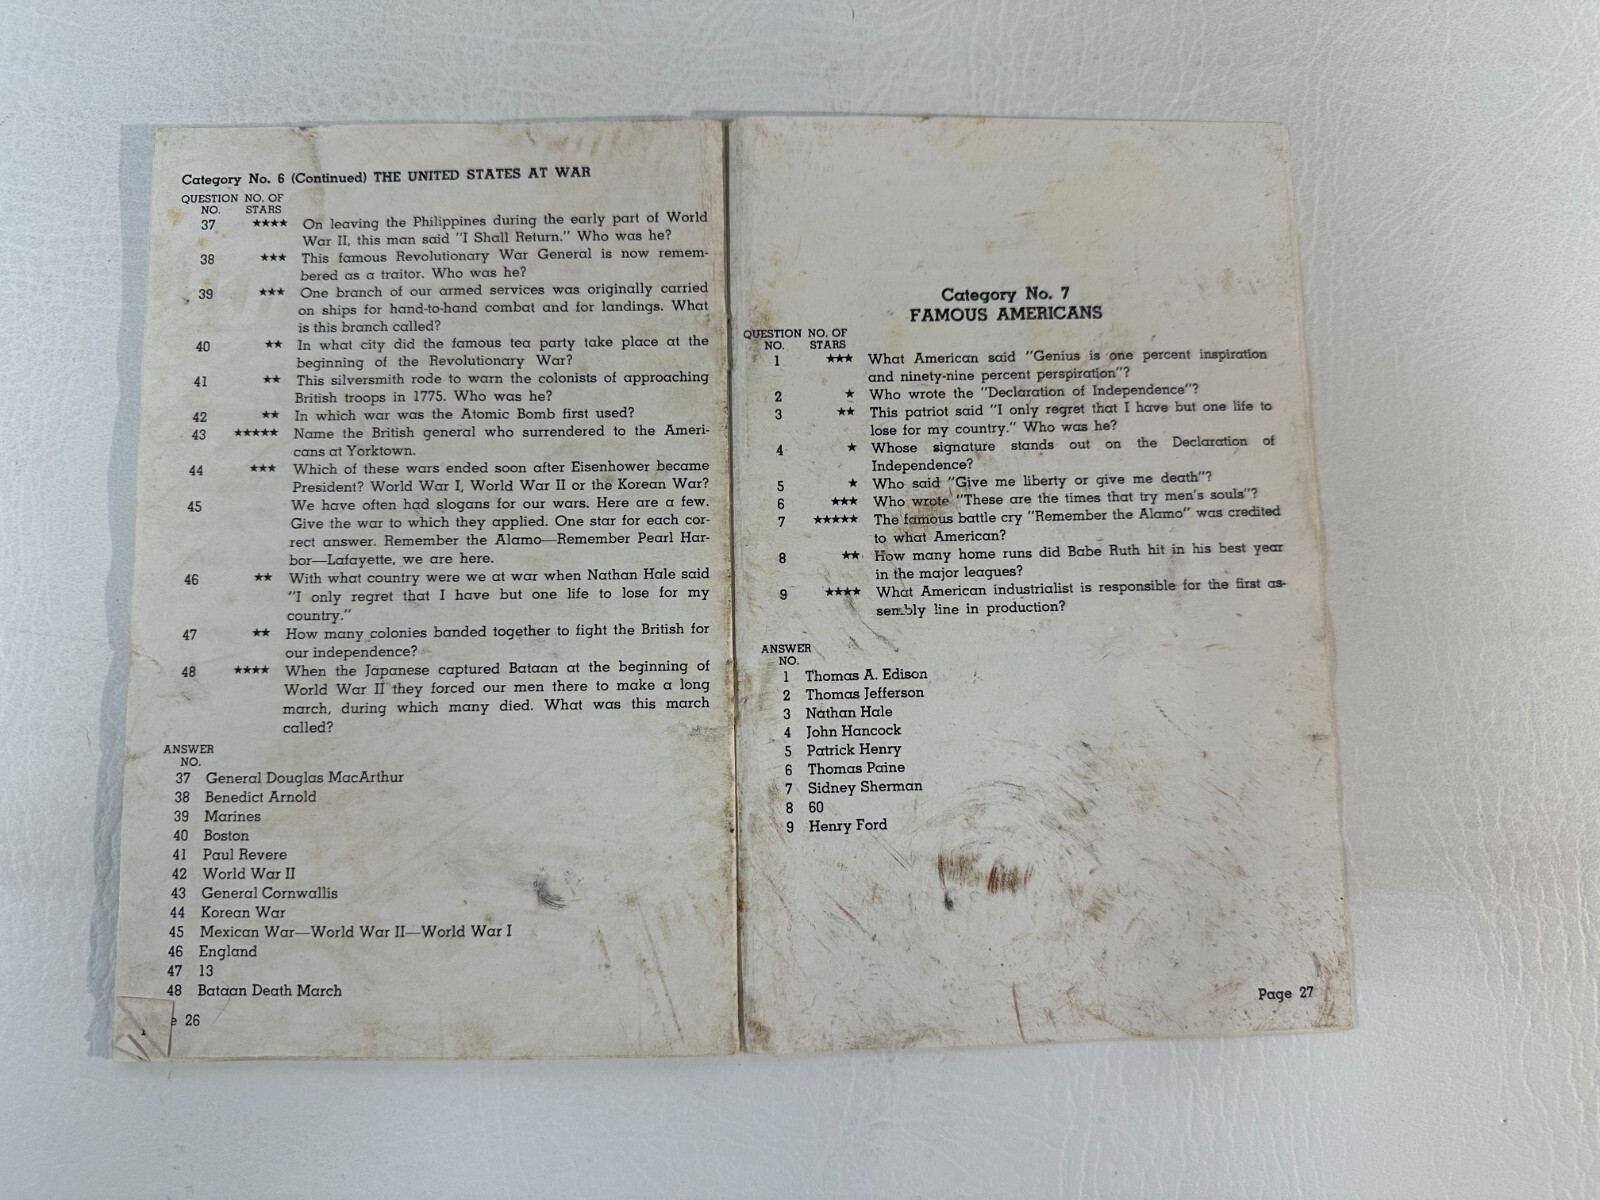 Category No. 6 (Continued) THE UNITED STATES AT WAR
QUESTION NO. OF
NO. STARS
37 ★★★★ On leaving the Philippines during the early part of World
War II, this man said "I Shall Return." Who was he?
38 ★★★ This famous Revolutionary War General is now remem-
bered as a traitor. Who was he?
39 ★★★ One branch of our armed services was originally carried
on ships for hand-to-hand combat and for landings. What
is this branch called?
40 ★★ In what city did the famous tea party take place at the
beginning of the Revolutionary War?
41 ★★ This silversmith rode to warn the colonists of approaching
British troops in 1775. Who was he?
42 ★★ In which war was the Atomic Bomb first used?
43 ★★★★★ Name the British general who surrendered to the Ameri-
cans at Yorktown.
44 ★★★ Which of these wars ended soon after Eisenhower became
President? World War I, World War II or the Korean War?
45 We have often had slogans for our wars. Here are a few.
Give the war to which they applied. One star for each cor-
rect answer. Remember the Alamo—Remember Pearl Har-
bor—Lafayette, we are here.
46 ★★ With what country were we at war when Nathan Hale said
"I only regret that I have but one life to lose for my
country."
47 ★★ How many colonies banded together to fight the British for
our independence?
48 ★★★★ When the Japanese captured Bataan at the beginning of
World War II they forced our men there to make a long
march, during which many died. What was this march
called?
ANSWER
NO.
37 General Douglas MacArthur
38 Benedict Arnold
39 Marines
40 Boston
41 Paul Revere
42 World War II
43 General Cornwallis
44 Korean War
45 Mexican War—World War II—World War I
46 England
47 13
48 Bataan Death March
e 26
Category No. 7
FAMOUS AMERICANS
QUESTION NO. OF
NO. STARS
1 ★★★ What American said "Genius is one percent inspiration
and ninety-nine percent perspiration"?
2 ★ Who wrote the "Declaration of Independence"?
3 ★★ This patriot said "I only regret that I have but one life to
lose for my country." Who was he?
4 ★ Whose signature stands out on the Declaration of
Independence?
5 ★ Who said "Give me liberty or give me death"?
6 ★★★ Who wrote "These are the times that try men's souls"?
7 ★★★★★ The famous battle cry "Remember the Alamo" was credited
to what American?
8 ★★ How many home runs did Babe Ruth hit in his best year
in the major leagues?
9 ★★★★ What American industrialist is responsible for the first as-
sembly line in production?
ANSWER
NO.
1 Thomas A. Edison
2 Thomas Jefferson
3 Nathan Hale
4 John Hancock
5 Patrick Henry
6 Thomas Paine
7 Sidney Sherman
8 60
9 Henry Ford
Page 27